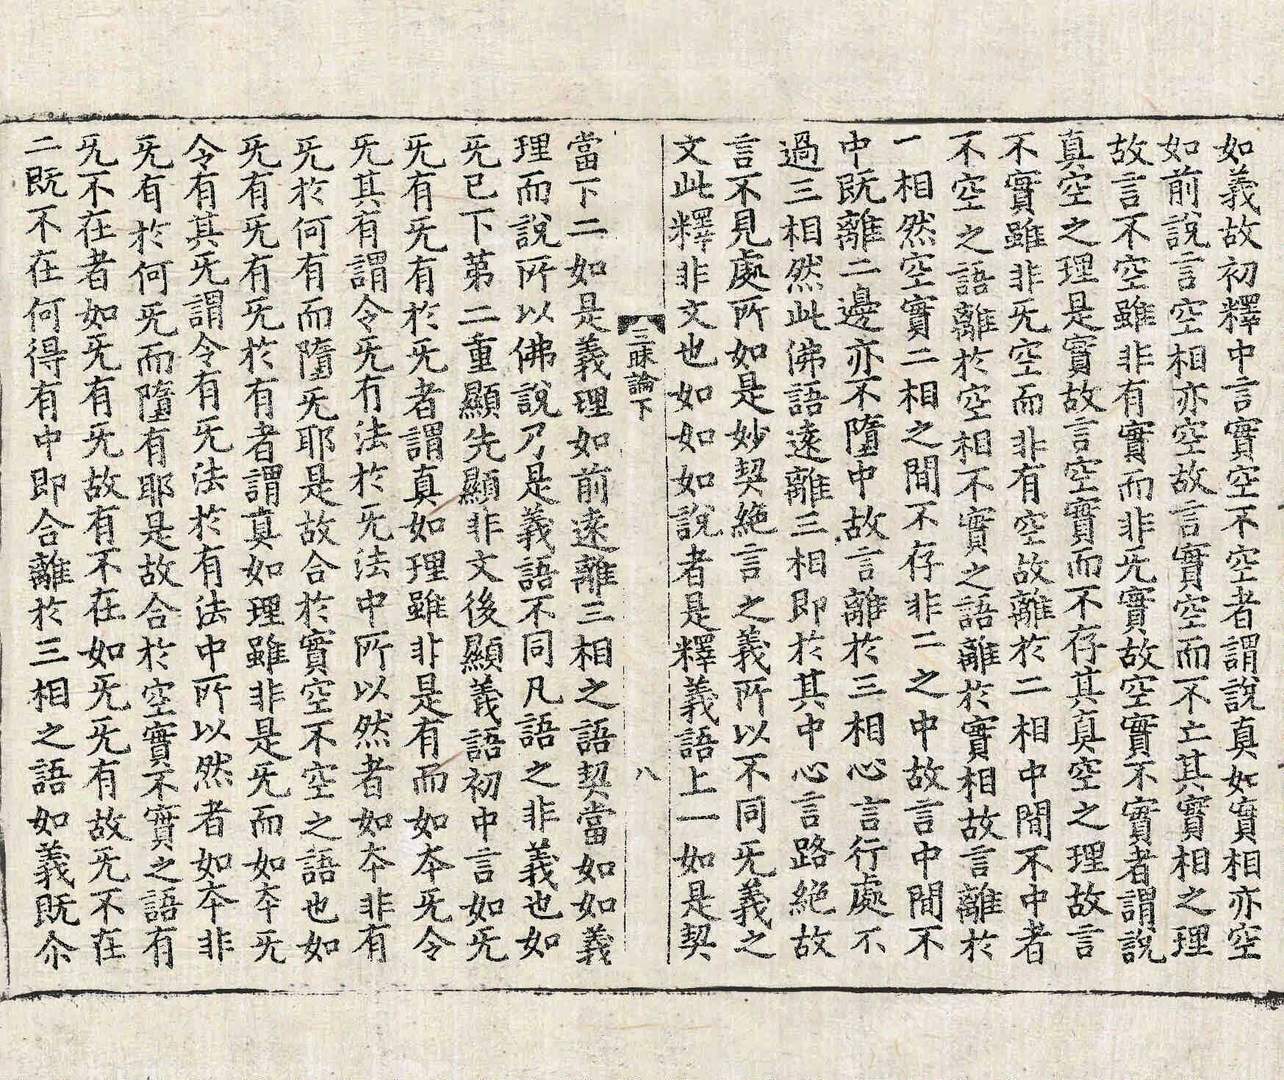 如義故初釋中言實空不空者謂說真如實相亦空
如前說言空相亦空故言實空而不亡其實相之理
故言不空雖非有實而非旡實故空實不實者謂說
真空之理是實故言空實而不存其真空之理故言
不實雖非旡空而非有空故離於二相中間不中者
不空之語離於空相不實之語離於實相故言離於
一相然空實二相之間不存非二之中故言中間不
中既離二邊亦不墮中故言離於三相心言行處不
過三相然此佛語遠離三相即於其中心言路絕故
言不見處所如是妙契絕言之義所以不同旡義之
文此釋非文也如如如說者是釋義語上一如是契
三昧論下
八
當下二如是義理如前遠離三相之語契當如如義
理而說所以佛說乃是義語不同凡語之非義也如
旡已下第二重顯先顯非文後顯義語初中言如旡
旡有旡有於旡者謂真如理雖非是有而如夲旡令
旡其有謂令旡冇法於旡法中所以然者如夲非有
旡於何有而墮旡耶是故合於實空不空之語也如
旡有旡有旡於有者謂真如理雖非是旡而如夲旡
令有其旡謂令有旡法於有法中所以然者如夲非
旡有於何旡而墮有耶是故合於空實不實之語有
旡不在者如旡有旡故有不在如旡旡有故旡不在
二既不在何得有中即合離於三相之語如義既尒